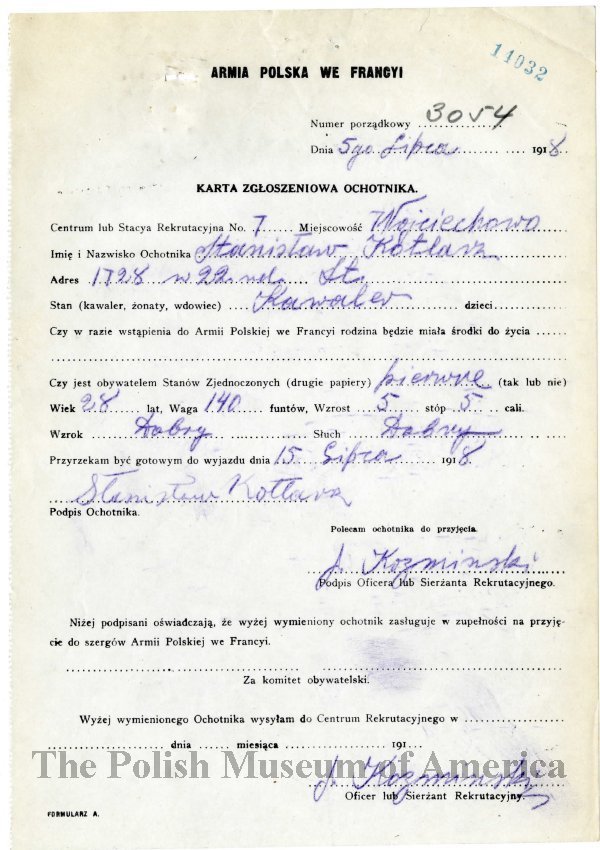 ARMIA POLSKA WE FRANCYI
11032
Numer porządkowy 3054
Dnia 5go Lipca 1918
KARTA ZGŁOSZENIOWA OCHOTNIKA.
Centrum lub Stacya Rekrutacyjna No. 7 Miejscowość Wojciechowo
Imię i Nazwisko Ochotnika Stanisław Kotlarz
Adres 1728 w 22 nd. St.
Stan (kawaler, żonaty, wdowiec) Kawaler dzieci
Czy w razie wstąpienia do Armii Polskiej we Francyi rodzina będzie miała środki do życia
Czy jest obywatelem Stanów Zjednoczonych (drugie papiery) pierwsze (tak lub nie)
Wiek 28 lat, Waga 140 funtów, Wzrost 5 stóp 5 cali.
Wzrok Dobry Słuch Dobry
Przyrzekam być gotowym do wyjazdu dnia 15 Lipca 1918.
Stanisław Kotlarz
Podpis Ochotnika.
Polecam ochotnika do przyjęcia
J. Kozminski
Podpis Oficera lub Sierżanta Rekrutacyjnego.
Niżej podpisani oświadczają, że wyżej wymieniony ochotnik zasługuje w zupełności na przyję-
cie do szergów Armii Polskiej we Francyi.
Za komitet obywatelski.
Wyżej wymienionego Ochotnika wysyłam do Centrum Rekrutacyjnego w
dnia miesiąca 191
The Polish Museum of America
J. Kozminski
Oficer lub Sierżant Rekrutacyjny.
FORMULARZ A.